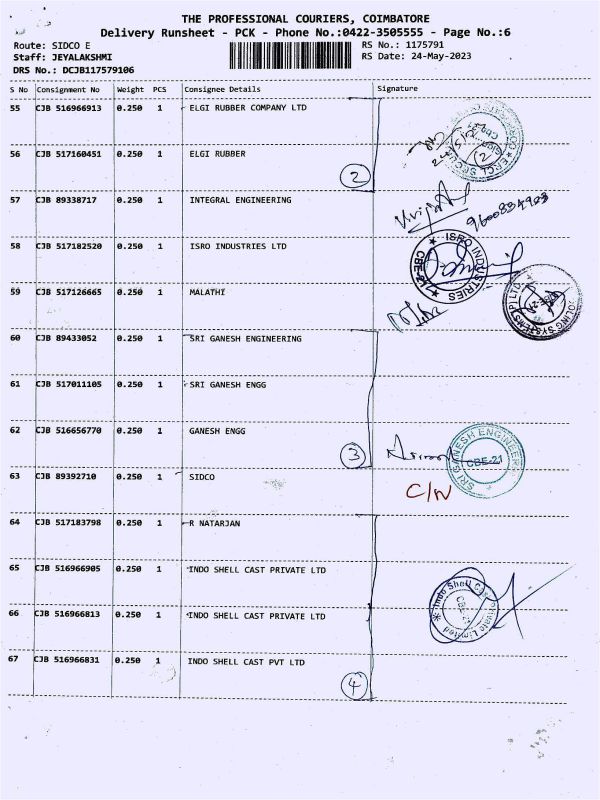 THE PROFESSIONAL COURIERS, COIMBATORE
Delivery Runsheet - PCK - Phone No.:0422-3505555 - Page No.:6
Route: SIDCO E
RS No.: 1175791
Staff: JEYALAKSHMI
RS Date: 24-May-2023
DRS No.: DCJB117579106
S No Consignment No Weight PCS Consignee Details Signature
55 CJB 516966913 0.250 1 ELGI RUBBER COMPANY LTD
56 CJB 517160451 0.250 1 ELGI RUBBER
2
2
57 CJB 89338717 0.250 1 INTEGRAL ENGINEERING
58 CJB 517182520 0.250 1 ISRO INDUSTRIES LTD
ISRO INDUSTRIES
59 CJB 517126665 0.250 1 MALATHI
60 CJB 89433052 0.250 1 SRI GANESH ENGINEERING
61 CJB 517011105 0.250 1 SRI GANESH ENGG
62 CJB 516656770 0.250 1 GANESH ENGG
3
SRI GANESH ENGINEERS
CBE-21
63 CJB 89392710 0.250 1 SIDCO
C/N
64 CJB 517183798 0.250 1 R NATARJAN
65 CJB 516966905 0.250 1 INDO SHELL CAST PRIVATE LTD
66 CJB 516966813 0.250 1 INDO SHELL CAST PRIVATE LTD
Indo Shell Cast Private Limited
67 CJB 516966831 0.250 1 INDO SHELL CAST PVT LTD
4